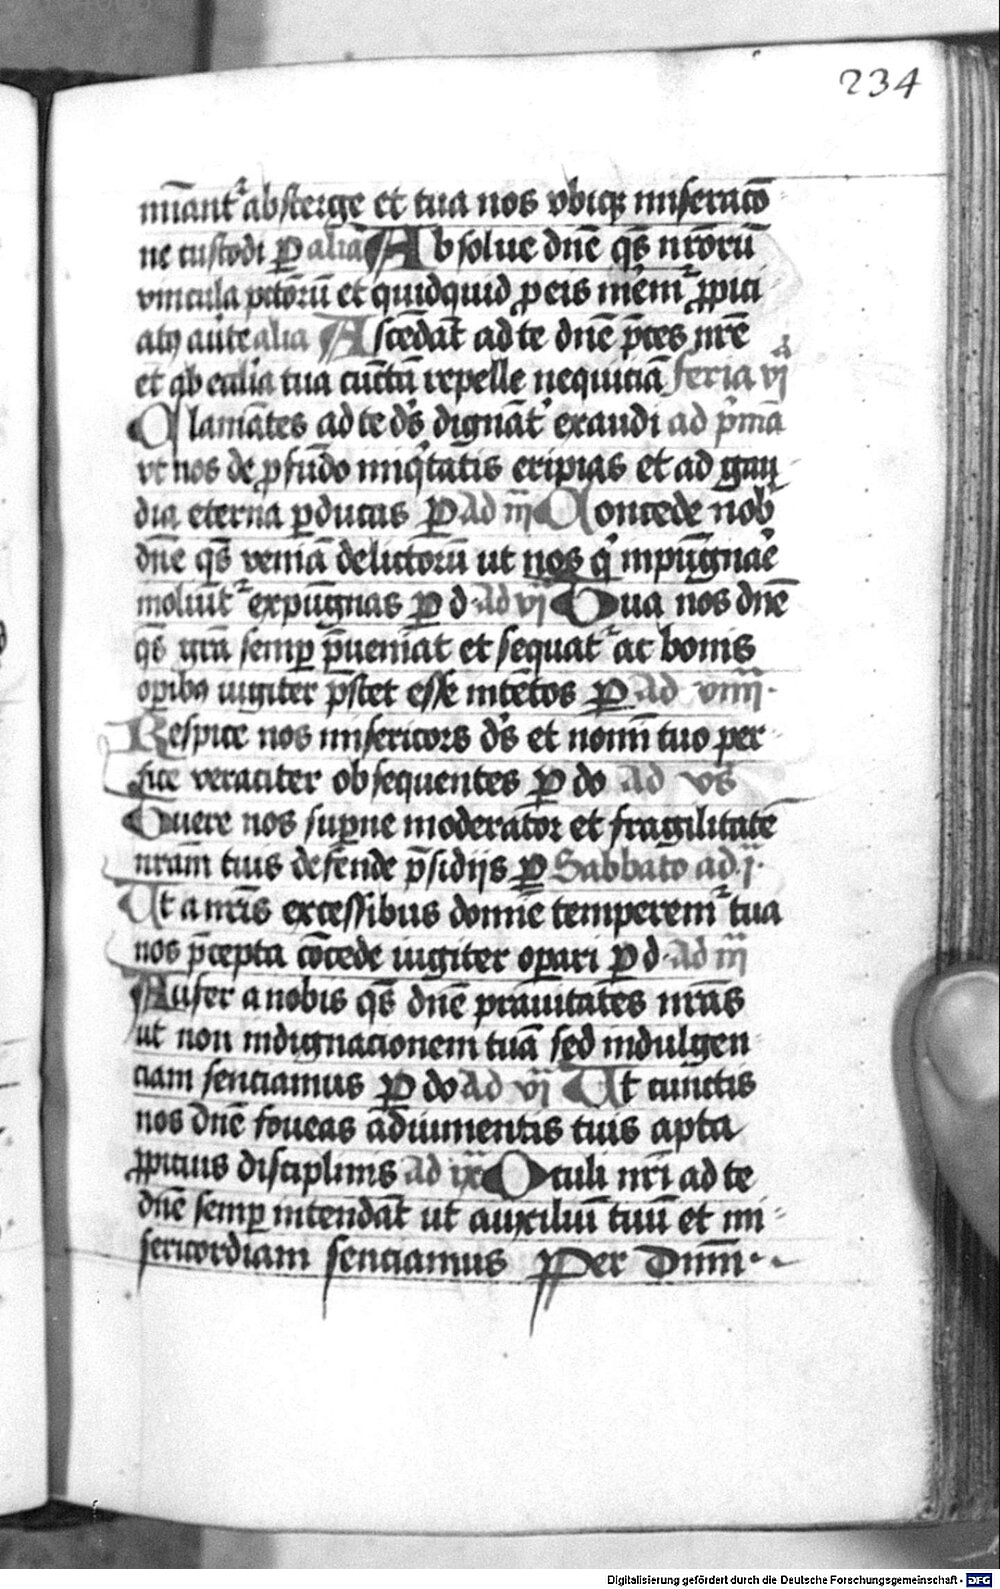 234
nūant᷑ absterge et tua nos vbicꝫ miseracō
ne custodi ꝑ alia Absolue dnē qs̄ nrōrū
vincula pctōrū et quidquid ꝓ eis mēem᷑ ꝓpici
atꝯ aūte alia Ascēdāt ad te dnē p̄ces nrē
et ab ecclīa tua cūctā repelle nequiciā feria vj
Clamātes ad te ds̄ dignāt᷑ exaudi ad p̄mā
vt nos de ꝓfūdo iniq̇tatis eripias et ad gau
dia eterna ꝑducas P Ad iij Concede nob̄
dnē qs̄ veniā delictorū ut nos q̇ inpugnar̄e
moliūt᷑ expugnas P d Ad vj Tua nos dnē
qs̄ grā semꝑ p̄ueniat et sequat᷑ ac bonis
oꝑibꝯ iugiter p̄stet esse intētos P Ad viiij
Respice nos misericors ds̄ et nomī tuo per
fice veraciter obsequentes P do Ad vs̄
Tuere nos suꝑne moderator et fragilitatē
nrām tuis defende p̄sidijs P Sabbato ad j
Ut a nrīs excessibus domīe temperem᷑ tua
nos p̄cepta cōcede iugiter oꝑari P d Ad iij
Aufer a nobis qs̄ dnē prauitates nrās
ut non indignacionem tuā sed indulgen
ciam senciamus P do Ad vj Ut cunctis
nos dnē foueas adiumentis tuis apta
ꝓpicius disciplinis ad ix Oculi nrī ad te
dnē semꝑ intendāt ut auxiliū tuū et mi
sericordiam senciamus Per Dnm̄
Digitalisierung gefördert durch die Deutsche Forschungsgemeinschaft - DFG